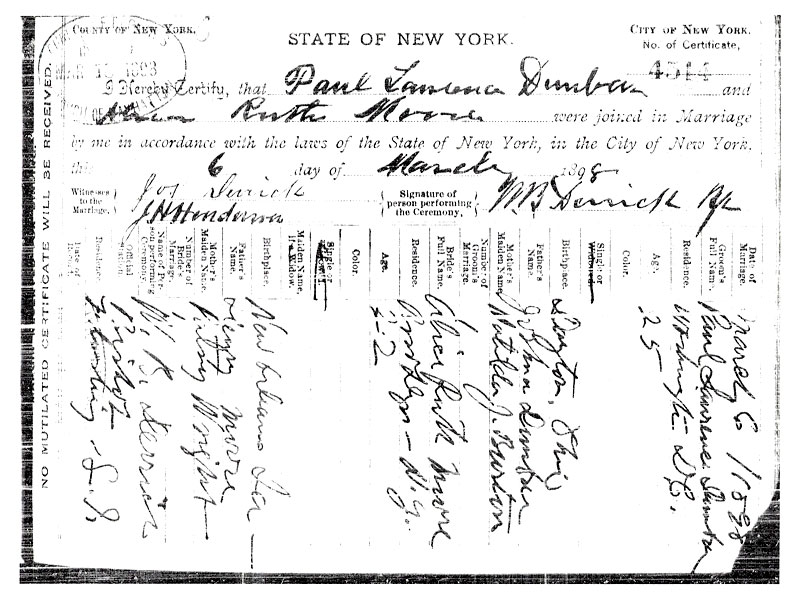 COUNTY OF NEW YORK.
STATE OF NEW YORK.
CITY OF NEW YORK.
No. of Certificate,
4514
I Hereby Certify, that Paul Laurence Dunbar and
Ruth Moore were joined in Marriage
by me in accordance with the laws of the State of New York, in the City of New York,
this 6 day of March 1898
Witnesses to the Marriage,
Jos Derrick
J H Henderson
Signature of person performing the Ceremony,
W. B. Derrick
NO MUTILATED CERTIFICATE WILL BE RECEIVED.
Date of Marriage. March 6 1898
Groom's Full Name. Paul Laurence Dunbar
Residence. Washington D.C.
Age. 25
Color.
Single or Widowed
Birthplace. Dayton, Ohio
Father's Name. Joshua Dunbar
Mother's Maiden Name. Matilda J. Burton
Number of Groom's Marriage.
Bride's Full Name. Alice Ruth Moore
Residence. Brooklyn - N.Y.
Age. 22
Color.
Single or
Maiden Name, if a Widow.
Birthplace. New Orleans La
Father's Name. Moore
Mother's Maiden Name. Wright
Number of Bride's Marriage.
Name of Person performing Ceremony. W. B. Derrick
Official Station. Bishop
Residence. Flushing L.I.
Date of